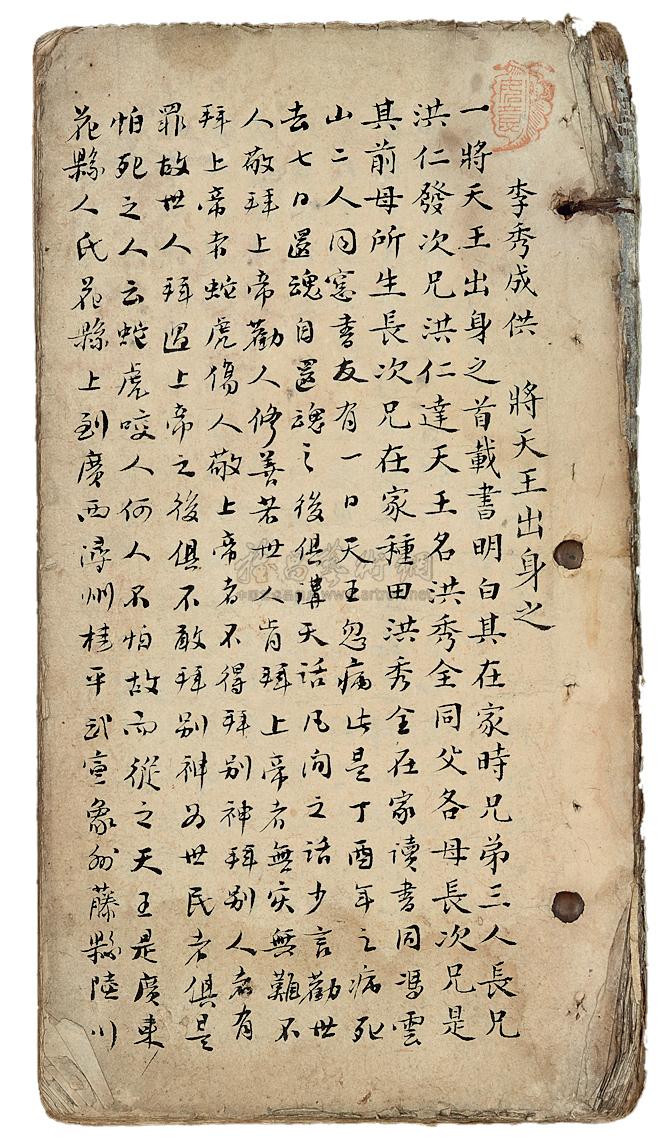 李秀成供　將天王出身之
一將天王出身之首載書明白其在家時兄弟三人長兄
洪仁發次兄洪仁達天王名洪秀全同父各母長次兄是
其前母所生長次兄在家種田洪秀全在家读書同馮雲
山二人同窓書友有一日天王忽病此是丁酉年之病死
去七日還魂自還魂之後俱講天話凡间之話少言勸世
人敬拜上帝勸人修善若世人肯拜上帝者無灾無難不
拜上帝者蛇虎傷人敬上帝者不得拜别神拜别人者有
罪故世人拜過上帝之後俱不敢拜别神为世民者俱是
怕死之人云蛇虎咬人何人不怕故而從之天王是廣東
花縣人氏花縣上到廣西潯州桂平武宣象州藤縣陸川